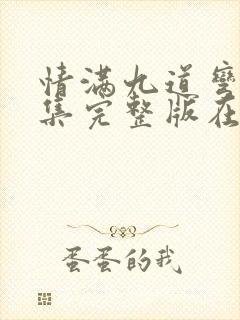 情满九道弯
集完整版在
蛋蛋的我